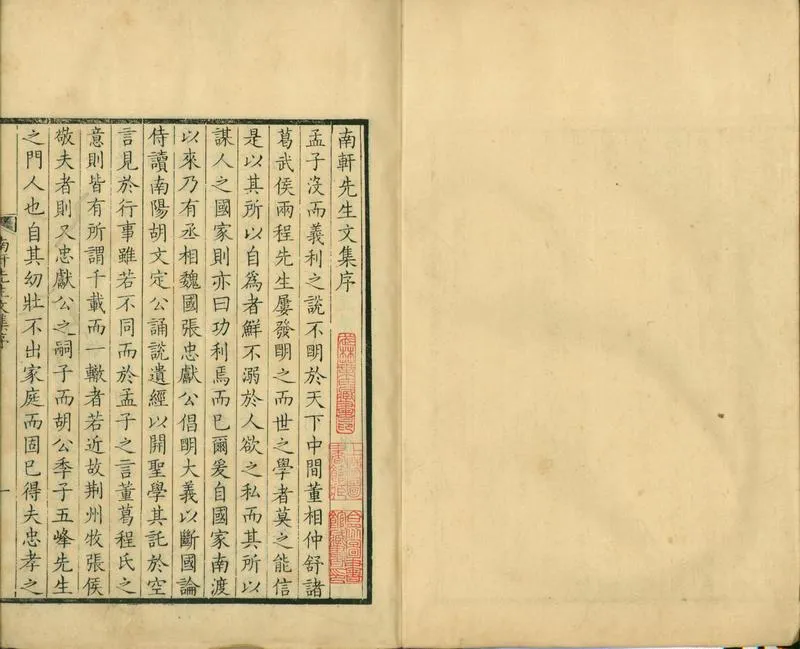 南軒先生文集序
孟子沒而義利之說不明於天下中間董相仲舒諸
葛武侯兩程先生屢發明之而世之學者莫之能信
是以其所以自爲者鮮不溺於人欲之私而其所以
謀人之國家則亦曰功利焉而已爾爰自國家南渡
以來乃有丞相魏國張忠獻公倡明大義以斷國論
侍讀南陽胡文定公誦說遺經以開聖學其託於空
言見於行事雖若不同而於孟子之言董葛程氏之
意則皆有所謂千載而一轍者若近故荆州牧張侯
敬夫者則又忠獻公之嗣子而胡公季子五峰先生
之門人也自其幼壯不出家庭而固已得夫忠孝之
南軒先生文集序
一